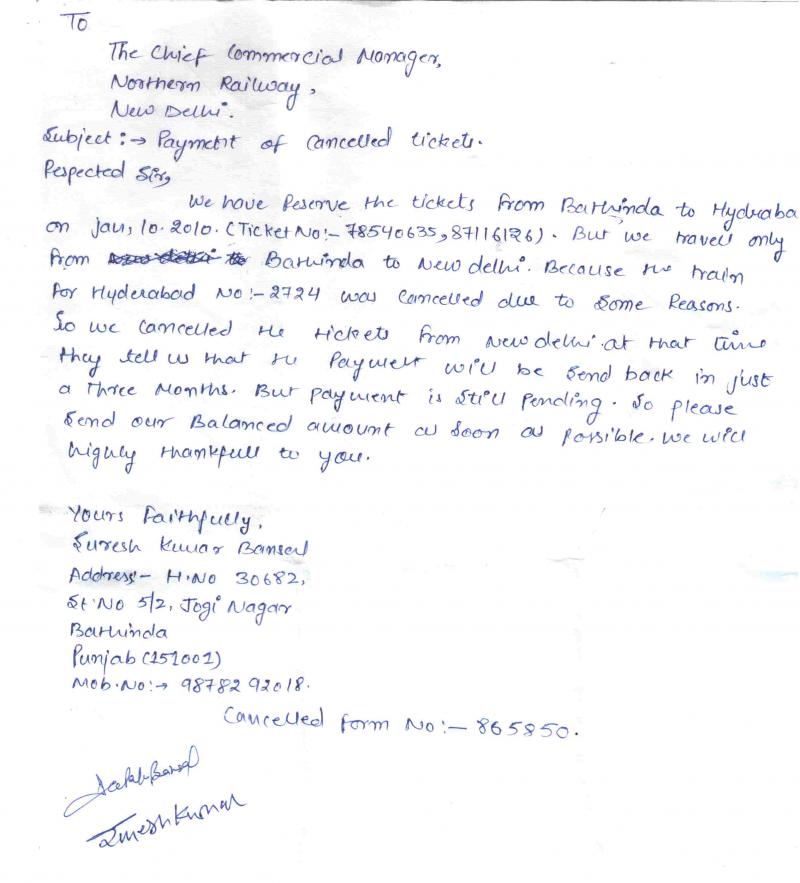 To
The Chief Commercial Manager,
Northern Railway,
New Delhi.
Subject :→ Payment of cancelled tickets.
Respected Sir,
We have Reserve the tickets from Bathinda to Hydraba
on jan, 10. 2010. (Ticket No:- 78540635, 87116126). But we travell only
from Bathinda to New delhi. Because the train
for Hyderabad No:- 2724 was cancelled due to some Reasons.
So we cancelled the tickets from New delhi. at that time
they tell us that the Payment will be send back in just
a Three Months. But payment is still pending. So please
send our Balanced amount as soon as possible. we will
highly thankfull to you.
Yours Faithfully,
Suresh Kumar Bansal
Address:- H.No 30682,
St. No 5/2, Jogi Nagar
Bathinda
Punjab (151001)
Mob. No:→ 98782 92018.
Cancelled form No:- 865850.
Bansal
Suresh Kumar